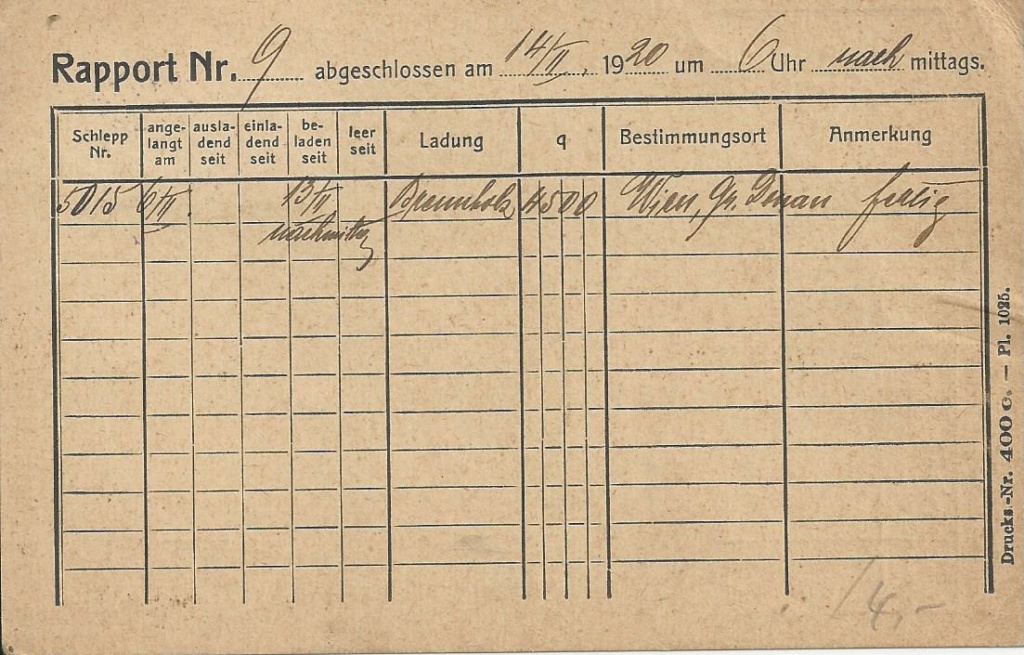 Rapport Nr. 9 abgeschlossen am 14/II. 1920 um 6 Uhr nach mittags.
Schlepp Nr. ange-langt am ausla-dend seit einla-dend seit be-laden seit leer seit Ladung q Bestimmungsort Anmerkung
5015 6/II. 13/II Brennholz 4500 Wien, Gr. Donau fertig
nachmittag
Drucks.-Nr. 400 C. — Pl. 1025.
4,-